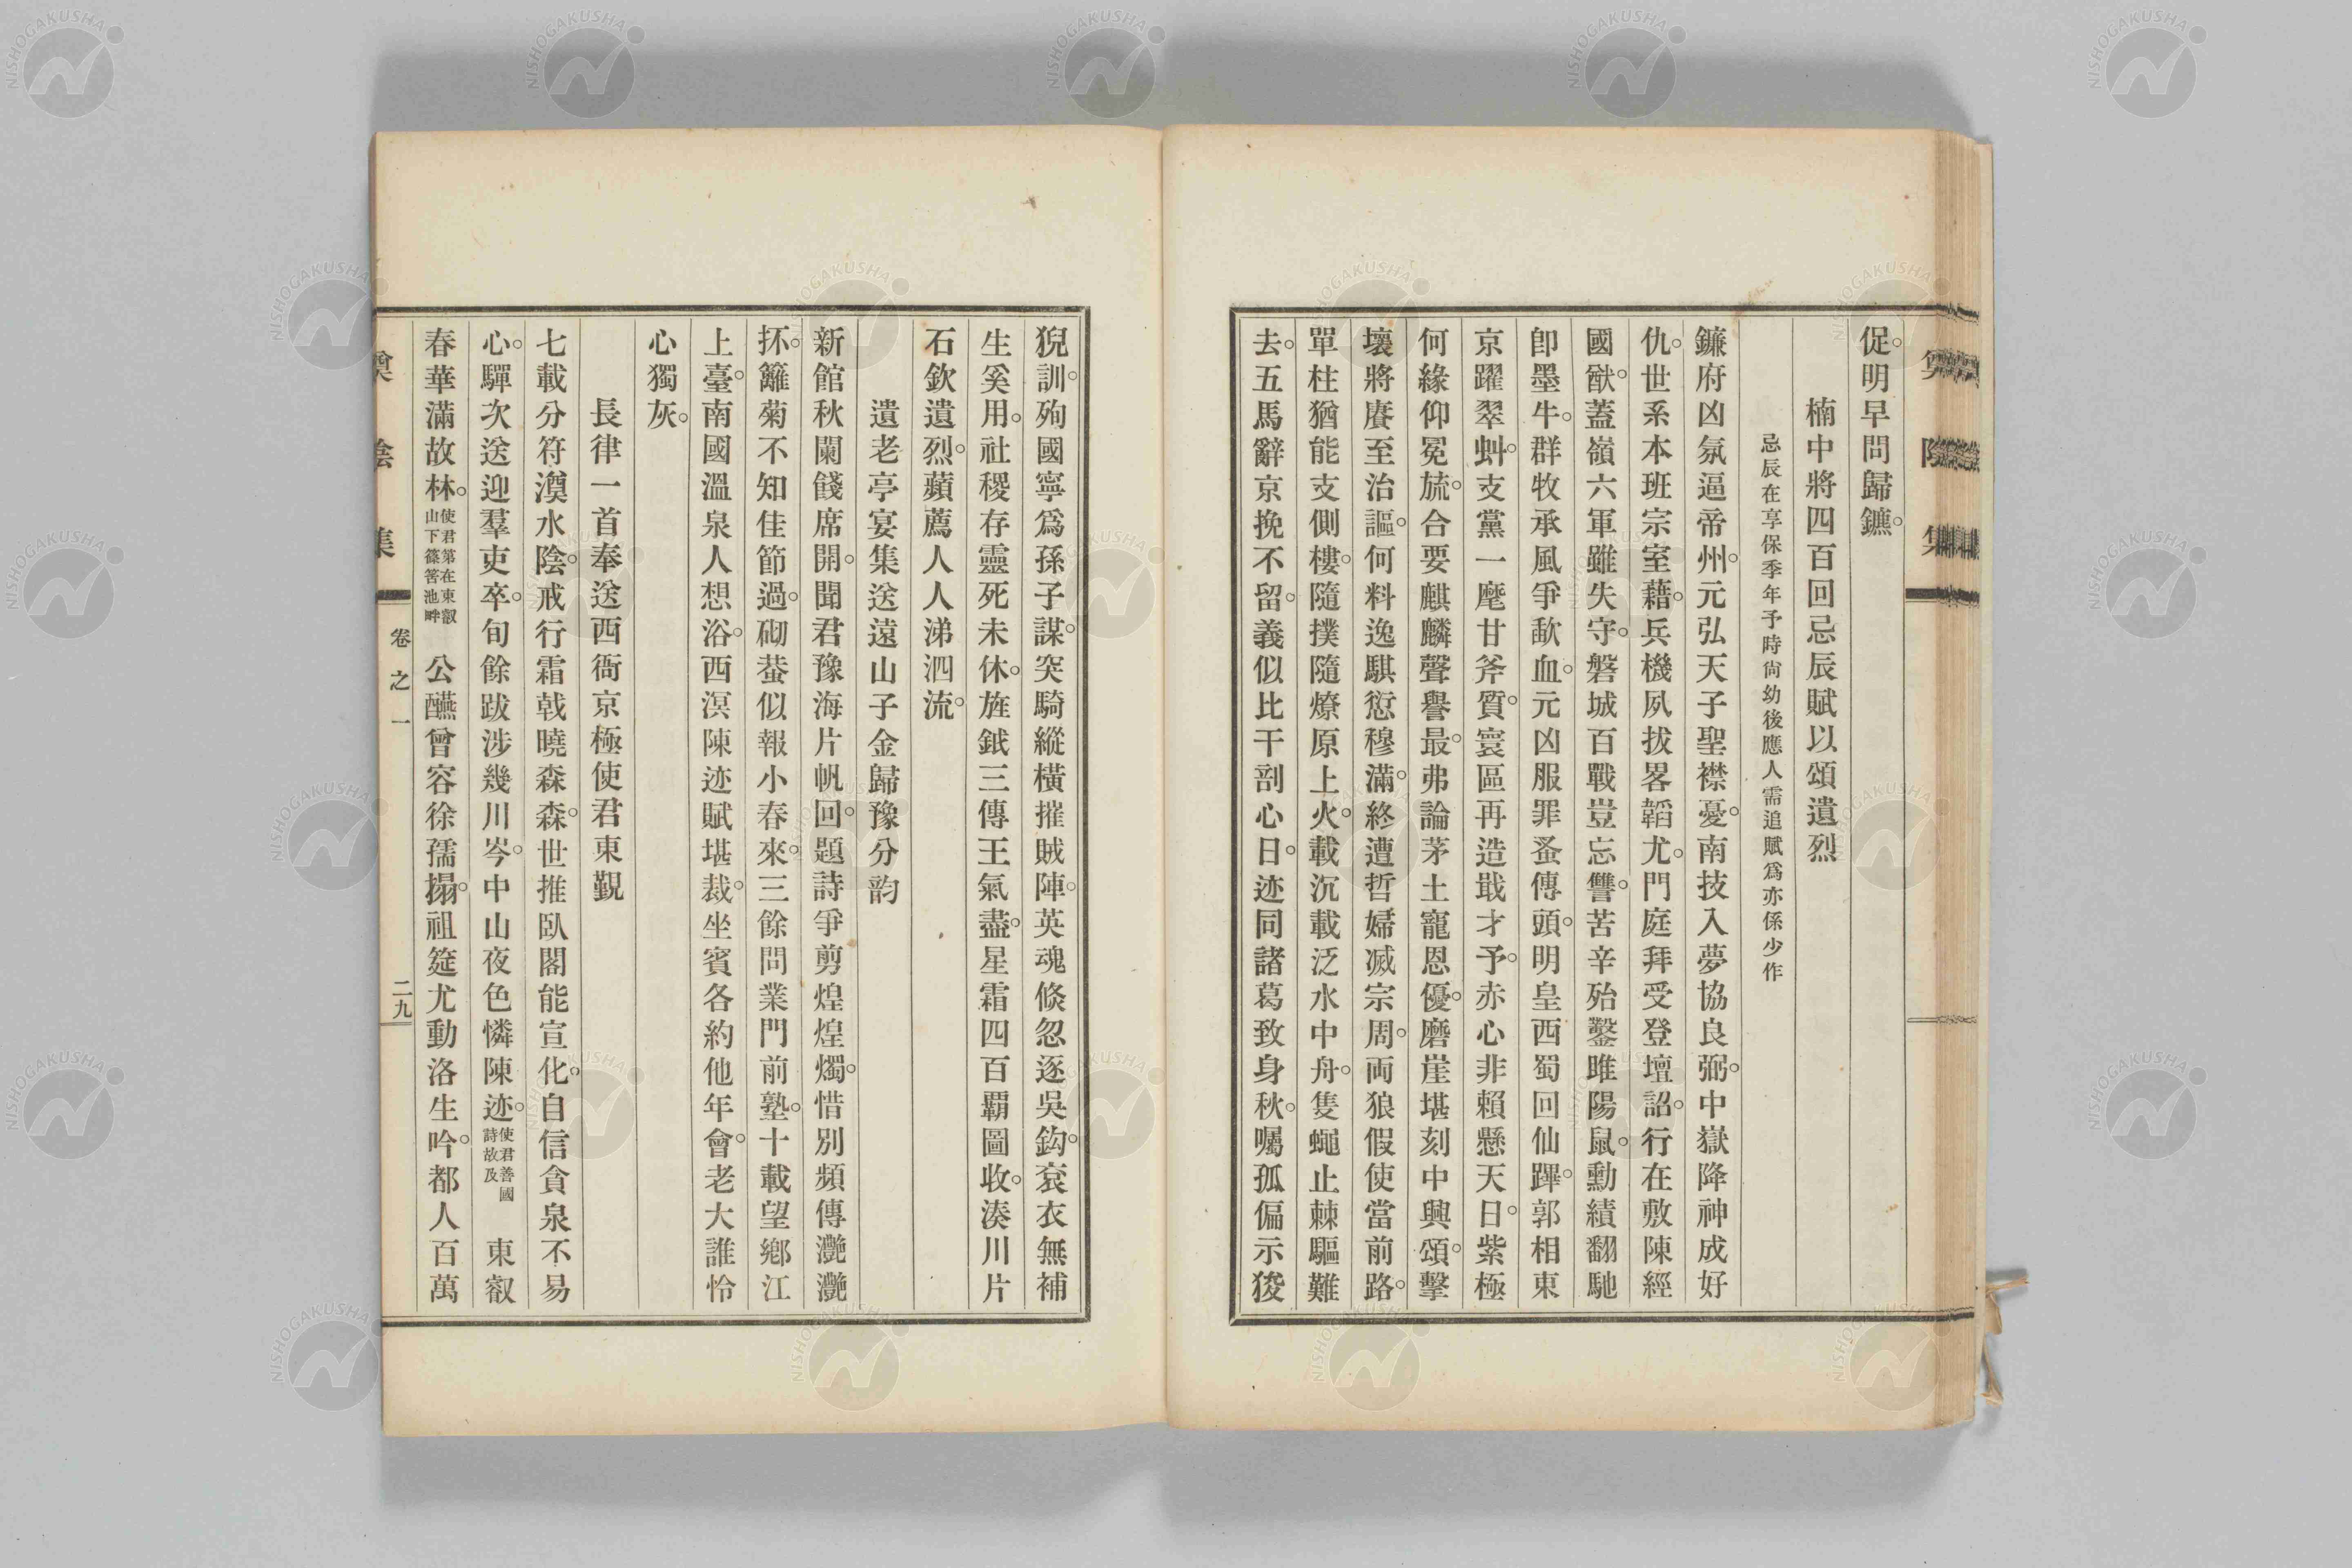 促。明早問歸鑣。
楠中將四百回忌辰賦以頌遺烈
忌辰在享保季年予時尙幼後應人需追賦爲亦係少作
鐮府凶氛逼帝州。元弘天子聖襟憂。南技入夢協良弼。中嶽降神成好
仇。世系本班宗室藉。兵機夙拔畧韜尤。門庭拜受登壇詔。行在敷陳經
國猷。蓋嶺六軍雖失守。磐城百戰豈忘讐。苦辛殆鑿雎陽鼠。勳績翻馳
卽墨牛。群牧承風爭歃血。元凶服罪蚤傳頭。明皇西蜀回仙蹕。郭相東
京躍翠虯。支黨一麾甘斧質。寰區再造戢才予。赤心非賴懸天日。紫極
何緣仰冕旒。合要麒麟聲譽最。弗論茅土寵恩優。磨崖堪刻中興頌。擊
壤將賡至治謳。何料逸騏愆穆滿。終遭哲婦滅宗周。両狼假使當前路。
單柱猶能支側樓。隨撲隨燎原上火。載沉載泛水中舟。隻蠅止棘驅難
去。五馬辭京挽不留。義似比干剖心日。迹同諸葛致身秋。囑孤偏示狻
猊訓。殉國寧爲孫子謀。突騎縱橫摧賊陣。英魂倐忽逐吳鈎。袞衣無補
生奚用。社稷存靈死未休。旌鉞三傳王氣盡。星霜四百覇圖收。湊川片
石欽遺烈。蘋薦人人涕泗流。
遺老亭宴集送遠山子金歸豫分韵
新館秋闌餞席開。聞君豫海片帆回。題詩爭剪煌煌燭。惜別頻傳灔灔
抔。籬菊不知佳節過。砌蛬似報小春來。三餘問業門前塾。十載望鄕江
上臺。南國溫泉人想浴。西溟陳迹賦堪裁。坐賓各約他年會。老大誰怜
心獨灰。
長律一首奉送西衙京極使君東覲
七載分符澳水陰。戒行霜戟曉森森。世推臥閣能宣化。自信貪泉不易
心。驒次送迎羣吏卒。旬餘跋涉幾川岑。中山夜色憐陳迹。使君善國詩故及 東叡
春華滿故林。使君第在東叡山下篠筈池畔 公醼曾容徐孺搨。祖筵尤動洛生吟。都人百萬
卷之一
二九